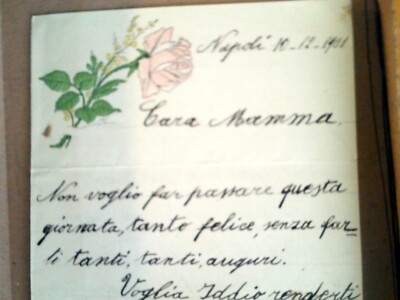 Napoli 10-12-1931
Cara Mamma,
Non voglio far passare questa
giornata, tanto felice, senza far-
ti tanti, tanti, auguri.
Voglia Iddio renderti